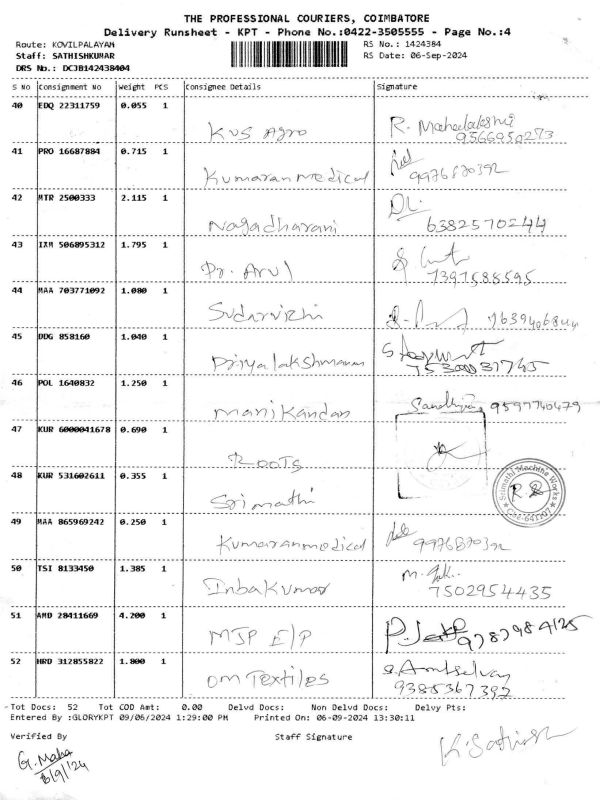 THE PROFESSIONAL COURIERS, COIMBATORE
Delivery Runsheet - KPT - Phone No.:0422-3505555 - Page No.:4
Route: KOVILPALAYAM RS No.: 1424384
Staff: SATHISHKUMAR RS Date: 06-Sep-2024
DRS No.: DCJB142438404
S No Consignment No Weight PCS Consignee Details Signature
40 EDQ 22311759 0.055 1
KVS Agro R. Mahalakshmi
9566950273
41 PRO 16687884 0.715 1
Kumaran medical 9976870392
42 MTR 2500333 2.115 1
Nagadharani 6382570244
43 IXM 506895312 1.795 1
Dr. Arul 7397588595
44 MAA 703771092 1.080 1
Sudarvizhi
45 DDG 858160 1.040 1
Priyalakshmanan
46 POL 1640832 1.250 1
Manikandan 9597740479
47 KUR 6000041678 0.690 1
Roots
48 KUR 531602611 0.355 1
Srimathi R.S
Srimathi Machine Works
CBE-641107
49 MAA 865969242 0.250 1
Kumaran medical 9976870392
50 TSI 8133450 1.385 1
Inbakumar 7502954435
51 AMD 28411669 4.200 1
MJP E/P
52 HRD 312855822 1.800 1
OM Textiles 9385367392
Tot Docs: 52 Tot COD Amt: 0.00 Delvd Docs: Non Delvd Docs: Delvy Pts:
Entered By :GLORYKPT 09/06/2024 1:29:00 PM Printed On: 06-09-2024 13:30:11
Verified By Staff Signature
G. Maha K. Sathish
6/9/24